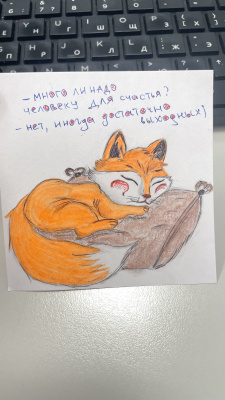 - много ли надо
человеку для счастья?
- нет, иногда достаточно
выходных)